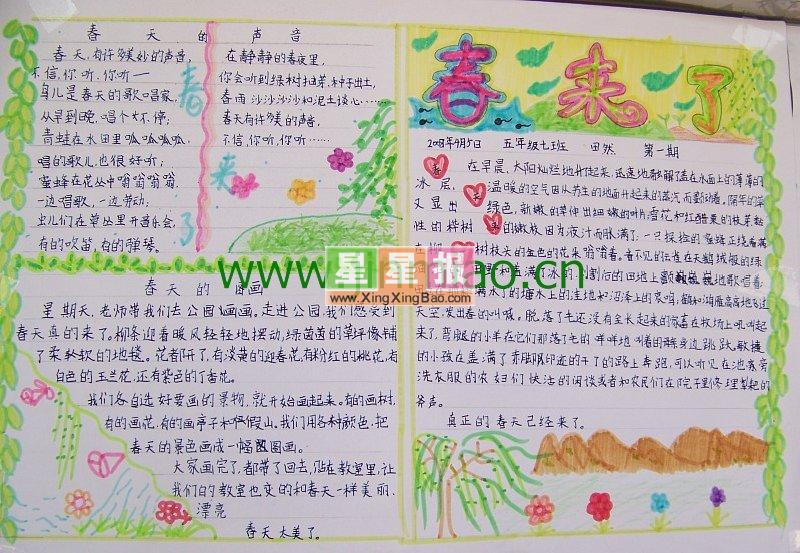 春天的声音
春天,有许多美妙的声音,
不信,你听,你听一
鸟儿是春天的歌唱家,
从早到晚,唱个不停;
青蛙在水田里呱呱呱呱,
唱的歌儿也很好听;
蜜蜂在花丛中嗡嗡嗡嗡,
一边唱歌,一边劳动;
虫儿们在草丛里开音乐会,
有的吹笛,有的弹琴。
在静静的春夜里,
你会听到绿树抽芽,种子出土,
春雨沙沙沙沙和泥土谈心……
春天有许多美的声音,
不信,你听,你听……
春来了
春天的图画
星期天,老师带我们去公园画画。走进公园,我们感受到
春天真的来了。柳条迎着暖风轻轻地摆动,绿茵茵的草坪像铺
了柔软的地毯。花都开了,有淡黄的迎春花,有粉红的桃花,有
白色的玉兰花,还有紫色的丁香花。
我们各自选好要画的景物,就开始画起来。有的画树,
有的画花,有的画亭子和假山。我们用各种颜色,把
春天的景色画成一幅图画。
大家画完了,都带了回去,贴在教室里,让
我们的教室也变的和春天一样美丽、
漂亮
春天太美了。
春来了
五年级七班 田然 第一期
春 在早晨,太阳灿烂地升起来,迅速地
冰层,
温暖的空气因从苏生的地面升起来的蒸汽而颤动着,隔年的草
又显出
绿色,新嫩的草伸出细嫩的叶片;雪花和红醋栗的枝芽粘
性的桦树
的嫩枝因为液汁而胀满了;一只探险的蜜蜂正绕着满
树枝头的金色的花朵嗡嗡着。看不见的云雀在天鹅绒般的绿
盖满了冰的、刈割后的田地上
地歌唱着
水的塘水上的洼地和沼泽上哀鸣,鹤和鸿雁高高地飞过
天空发出春的叫喊。脱落了毛还没有全长起来的家畜在牧场上吼叫起
来了,弯腿的小羊在它们那落了毛的咩咩地叫着的母亲身边跳跃。敏捷
的小孩在盖满了赤脚脚印迹的干了的路上奔跑,可以听见在池塘旁
洗衣服的农妇们快活的闲谈或者和农民们在院子里修理犁耙的
斧声。
真正的春天已经来了。
星星报
www.XingXingBao.com